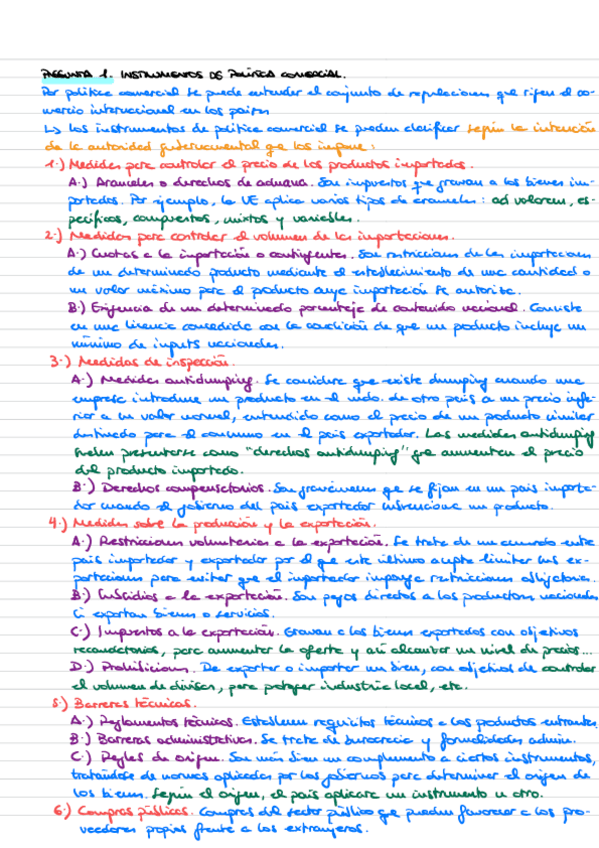 PREGUNTA 1. INSTRUMENTOS DE POLÍTICA COMERCIAL.
Por política comercial se puede entender el conjunto de regulaciones que rigen el co-
mercio internacional en los países
↳ Los instrumentos de política comercial se pueden clasificar según la intención
de la autoridad gubernamental que los impone:
1.) Medidas para controlar el precio de los productos importados.
A.) Aranceles o derechos de aduana. Son impuestos que gravan a los bienes im-
portados. Por ejemplo, la UE aplica varios tipos de aranceles: ad valorem, es-
pecíficos, compuestos, mixtos y variables.
2.) Medidas para controlar el volumen de las importaciones.
A.) Cuotas a la importación o contingentes. Son restricciones de las importaciones
de un determinado producto mediante el establecimiento de una cantidad o
un valor máximo para el producto cuya importación se autoriza.
B.) Exigencia de un determinado porcentaje de contenido nacional. Consiste
en una licencia concedida con la condición de que un producto incluya un
mínimo de inputs nacionales.
3.) Medidas de inspección.
A.) Medidas antidumping. Se considera que existe dumping cuando una
empresa introduce un producto en el mdo. de otro país a un precio infe-
rior a un valor normal, entendido como el precio de un producto similar
destinado para el consumo en el país exportador. Las medidas antidumping
suelen presentarse como "derechos antidumping" que aumentan el precio
del producto importado.
B.) Derechos compensatorios. Son gravámenes que se fijan en un país importa-
dor cuando el gobierno del país exportador subvenciona un producto.
4.) Medidas sobre la producción y la exportación.
A.) Restricciones voluntarias a la exportación. Se trata de un acuerdo entre
país importador y exportador por el que este último acepta limitar sus ex-
portaciones para evitar que el importador imponga restricciones obligatorias.
B.) Subsidios a la exportación. Son pagos directos a los productores nacionales
si exportan bienes o servicios.
C.) Impuestos a la exportación. Gravan a los bienes exportados con objetivos
recaudatorios, para aumentar la oferta y así alcanzar un nivel de precios...
D.) Prohibiciones. De exportar o importar un bien, con objetivos de controlar
el volumen de divisas, para proteger industria local, etc.
5.) Barreras técnicas.
A.) Reglamentos técnicos. Establecen requisitos técnicos a los productos entrantes.
B.) Barreras administrativas. Se trata de burocracia y formalidades admin.
C.) Reglas de origen. Son más bien un complemento a ciertos instrumentos,
tratándose de normas aplicadas por los gobiernos para determinar el origen de
los bienes. Según el origen, el país aplicará un instrumento u otro.
6.) Compras públicas. Compras del sector público que pueden favorecer a los pro-
veedores propios frente a los extranjeros.